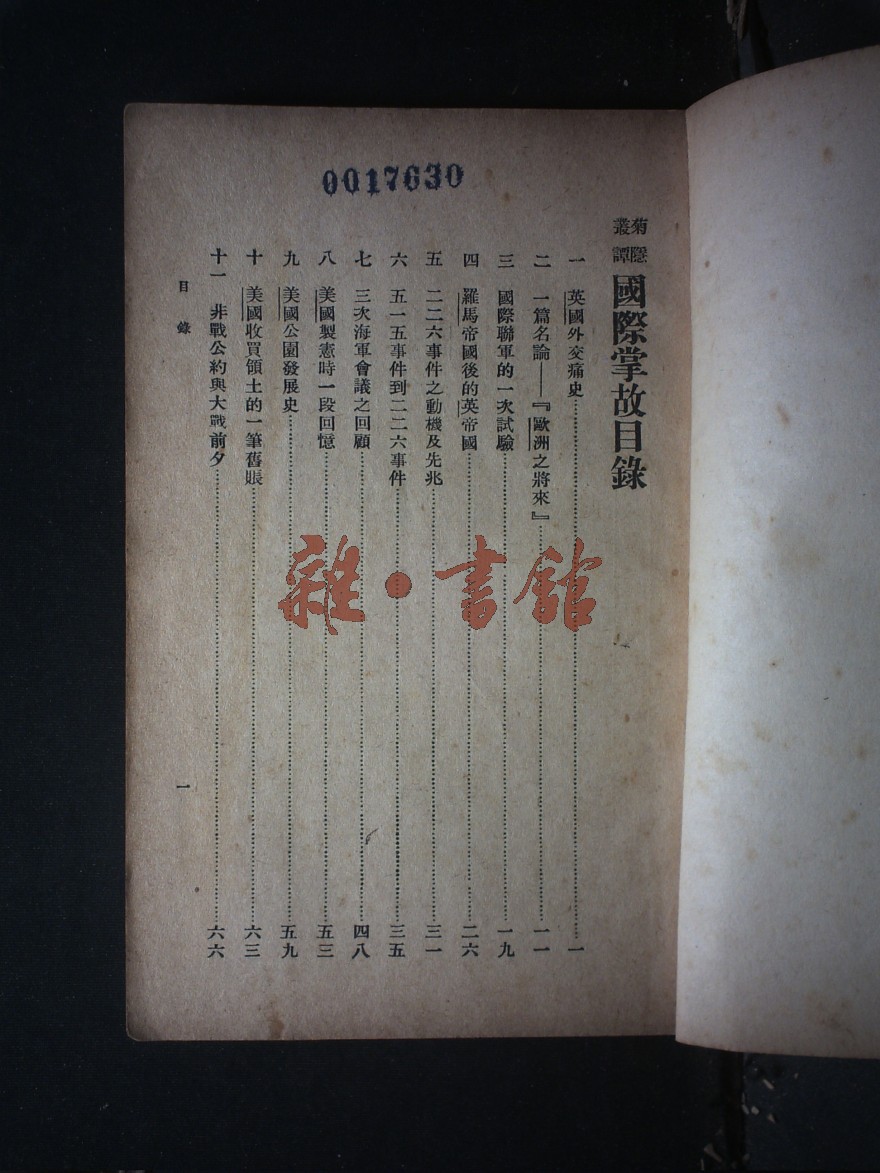 0017630
菊隱叢譚 國際掌故目錄
一 英國外交痛史……一
二 一篇名論——『歐洲之將來』……一一
三 國際聯軍的一次試驗……一九
四 羅馬帝國後的英帝國……二六
五 二二六事件之動機及先兆……三一
六 五一五事件到二二六事件……三五
七 三次海軍會議之回顧……四八
八 美國製憲時一段回憶……五三
九 美國公園發展史……五九
十 美國收買領土的一筆舊賬……六三
十一 非戰公約與大戰前夕……六六
目錄 一
雜·書館